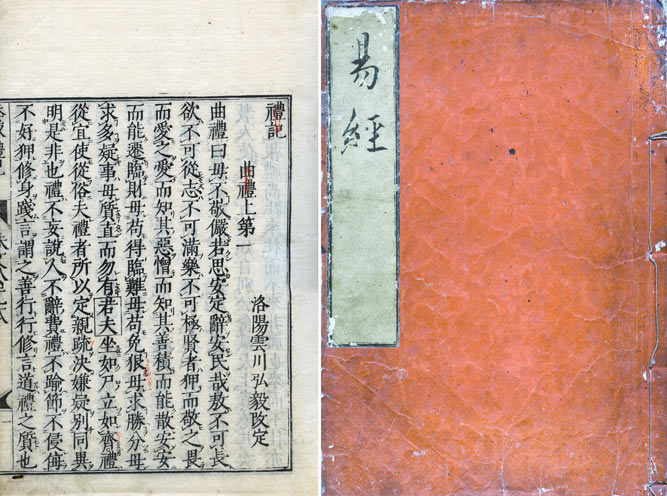 禮記
曲禮上第一
洛陽雲川弘毅改定
曲禮曰毋不敬儼若思安定辭安民哉敖不可長
欲不可從志不可滿樂不可極賢者狎而敬之畏
而愛之愛而知其惡憎而知其善積而能散安安
而能遷臨財毋苟得臨難毋苟免狠毋求勝分毋
求多疑事毋質直而勿有若夫坐如尸立如齊禮
從宜使從俗夫禮者所以定親疏決嫌疑別同異
明是非也禮不妄說人不辭費禮不踰節不侵侮
不好狎修身踐言謂之善行行修言道禮之質也
易經